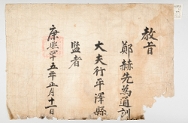 教旨
鄭赫先爲通訓
大夫行平澤縣
監者
康熙五年月十一日